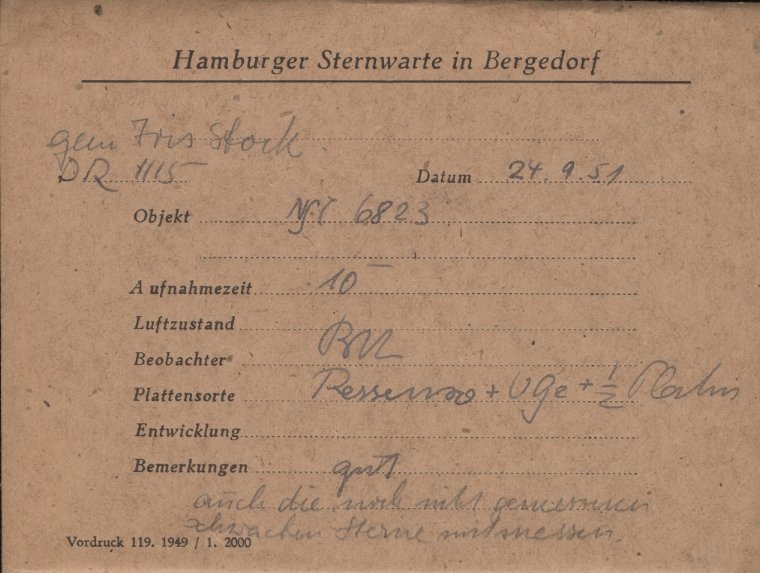 Hamburger Sternwarte in Bergedorf
gem Iris Stock
DR 1115
Datum 24.9.51
Objekt NGC 6823
Aufnahmezeit 10
Luftzustand
Beobachter
Plattensorte + UGe + 1/2
Entwicklung
Bemerkungen gut
auch die noch nicht gemessenen
schwachen Sterne mitmessen.
Vordruck 119. 1949 / 1. 2000